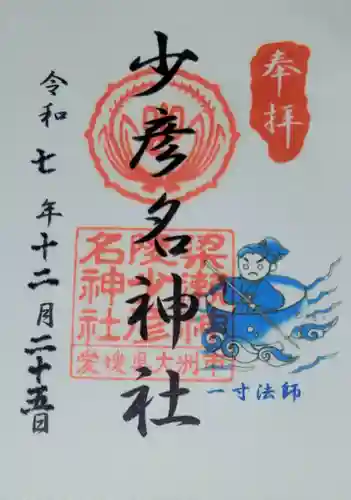 奉拝
少彦名神社
令和七年十二月二十五日
梁瀬
少彦
名神社
愛媛県大洲市
一寸法師